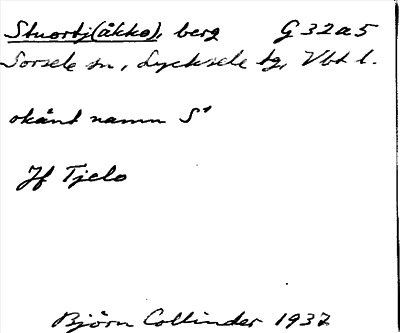 Stuortj(åkko), berg G 32a5
Sorsele sn, Lycksele tg, Vbt l.
okänt namn S¹
Jf Tjelo
Björn Collinder 1937